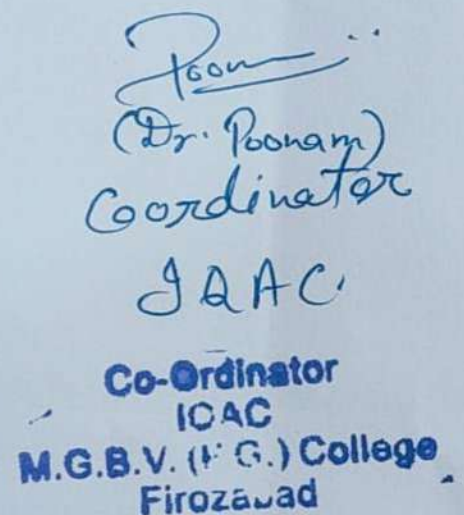 Poonam
(Dr. Poonam)
Coordinator
IQAC
Co-Ordinator
IQAC
M.G.B.V. (P.G.) College
Firozabad